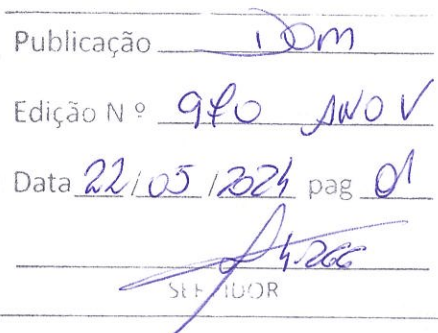 Publicação DOM
Edição Nº 970 ANO V
Data 22/05/2024 pag 01
SERVIDOR